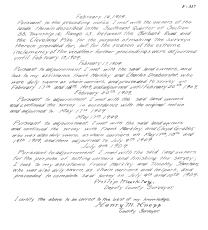 February 14, 1909.
Pursuant to the preceding order I met with the owners of the
lands therein described in the Southeast Quarter of Section
33, Township 6, Range 13, between the Barbard Road and
the Cleveland Pike, for the purpose of making the surveys
therein provided for, but for the reason of the extreme
inclemency of the weather further proceedings were adjourned
until February 17, 1909.
February 17, 1909.
Pursuant to adjournment I met with the said land owners, and
had as my assistants Frank Hartley and Charles
were duly sworn as chain carriers, and proceeded to survey on
February 17th and 18th and adjourned until February 20th 1909.
February 20th 1909.
Pursuant to adjournment I met with the said land owners
and continued the survey in accordance with the original notice
and adjourned to May 17th 1909.
May 17th 1909.
Pursuant to adjournment, I met with the land owners and
and continued the survey with Frank Hartley and Lloyd
who was also duly sworn, as chain carriers on May 17th, 18th and
19th 1909, and then adjourned to July 4th 1909.
July 4th 1909.
Pursuant to adjournment I met with the said land owners
for the purpose of setting corners and finishing the survey,
I had as my assistants Frank Hartley and Timothy
who was also duly sworn, as chain carriers and helpers, and
proceeded to complete said survey on July 4th and 5th 1909.
Philip
Deputy County Surveyor
I certify the above to be correct to the best of my knowledge.
Henry M.
County Surveyor